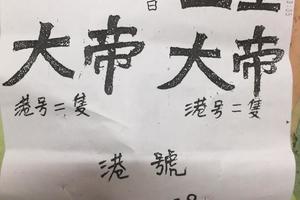 日
大帝 大帝
港号二隻 港号二隻
港號